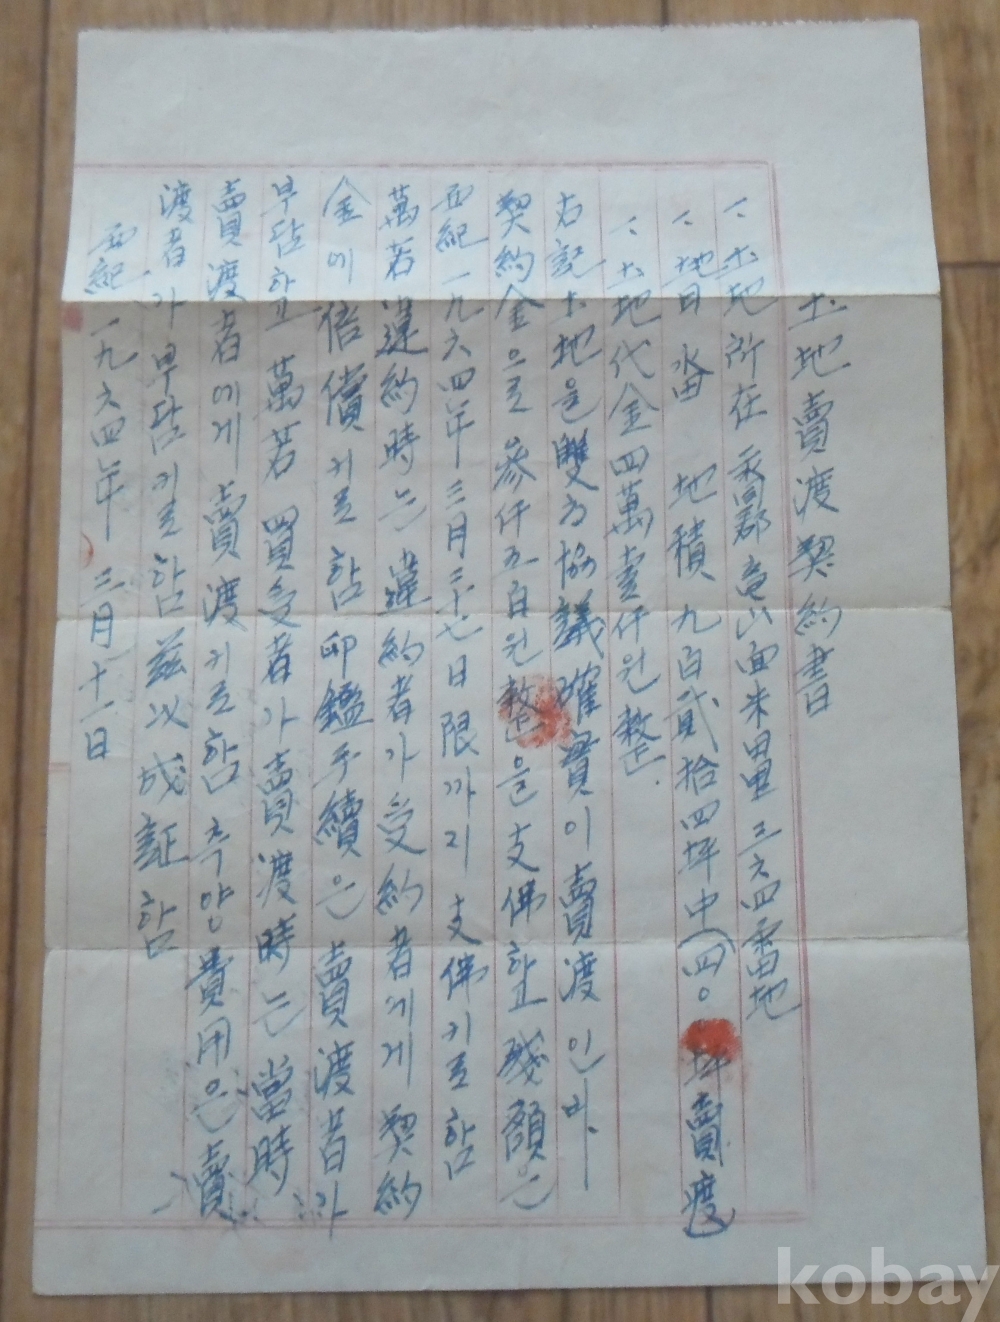 土地賣渡契約書
一、土地所在 永同郡 龍山面 米田里 三六四番地
一、地目 畓 地積 九百貳拾四坪中(四〇 坪賣渡)
一、土地代金 四萬壹仟원整.
右記土地을 雙方協議 確實이 賣渡인바
契約金으로 參仟五百원整을 支佛하고 殘額은
西紀一九六四年 三月 二十七日限까지 支佛키로함
萬若 違約時는 違約者가 受約者에게 契約
金에 倍償키로함 印鑑手續은 賣渡者가
부담하고 萬若 買受者가 賣渡時는 當時
賣渡者에게 賣渡키로함 측량費用은 賣
渡者가 부담키로함 玆以成証함
西紀一九六四年 三月十一日
kobay